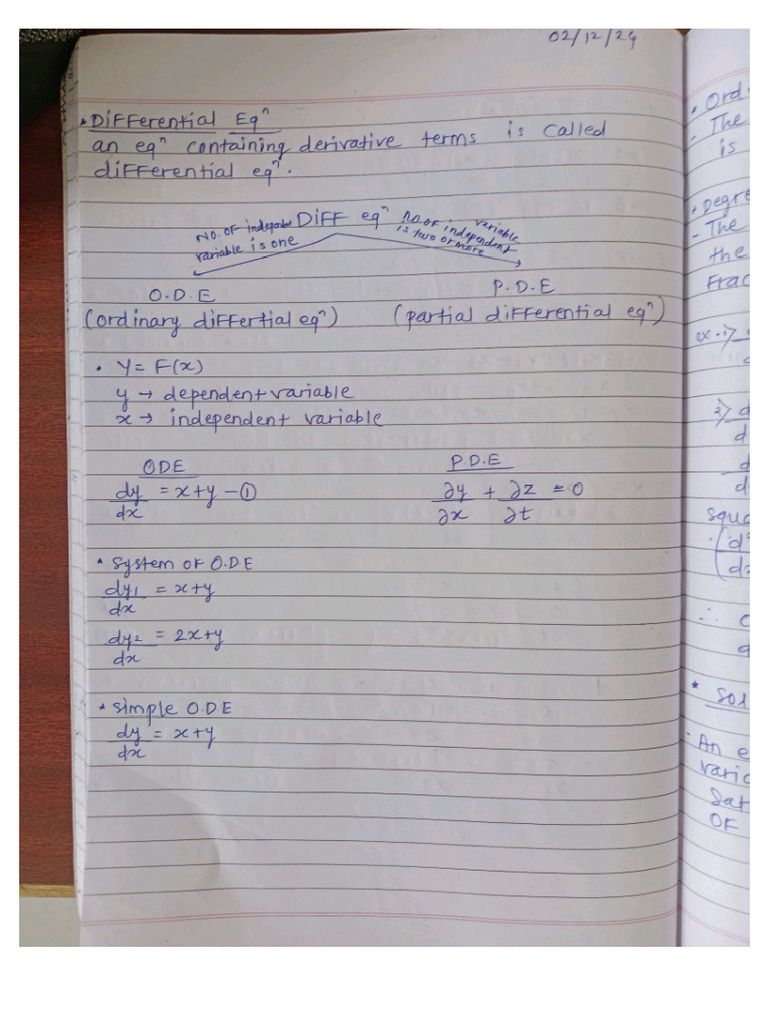 02/12/24
• Differential Eqⁿ
an eqⁿ containing derivative terms is called
differential eqⁿ.
Diff eqⁿ
No. of independent
variable is one
no. of independent variable
is two or more
O.D.E
P.D.E
(ordinary differtial eqⁿ)
(partial differential eqⁿ)
• Y = F(x)
y → dependent variable
x → independent variable
ODE
P.D.E
dy/dx = x+y - ①
∂y/∂x + ∂z/∂t = 0
* System of O.D.E
dy1/dx = x+y
dy2/dx = 2x+y
* Simple O.D.E
dy/dx = x+y
• Ord
- The
is
• Degre
- The
the
Frac
ex. 1)
2) d
d
d
d
squa
∴
* Sol
An e
varia
Sat
OF